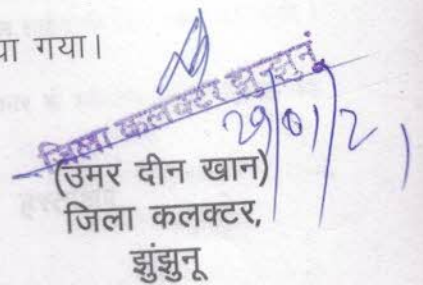 या गया।
जिला कलक्टर झुन्झुनूं
29/01/21
(उमर दीन खान)
जिला कलक्टर,
झुंझुनू